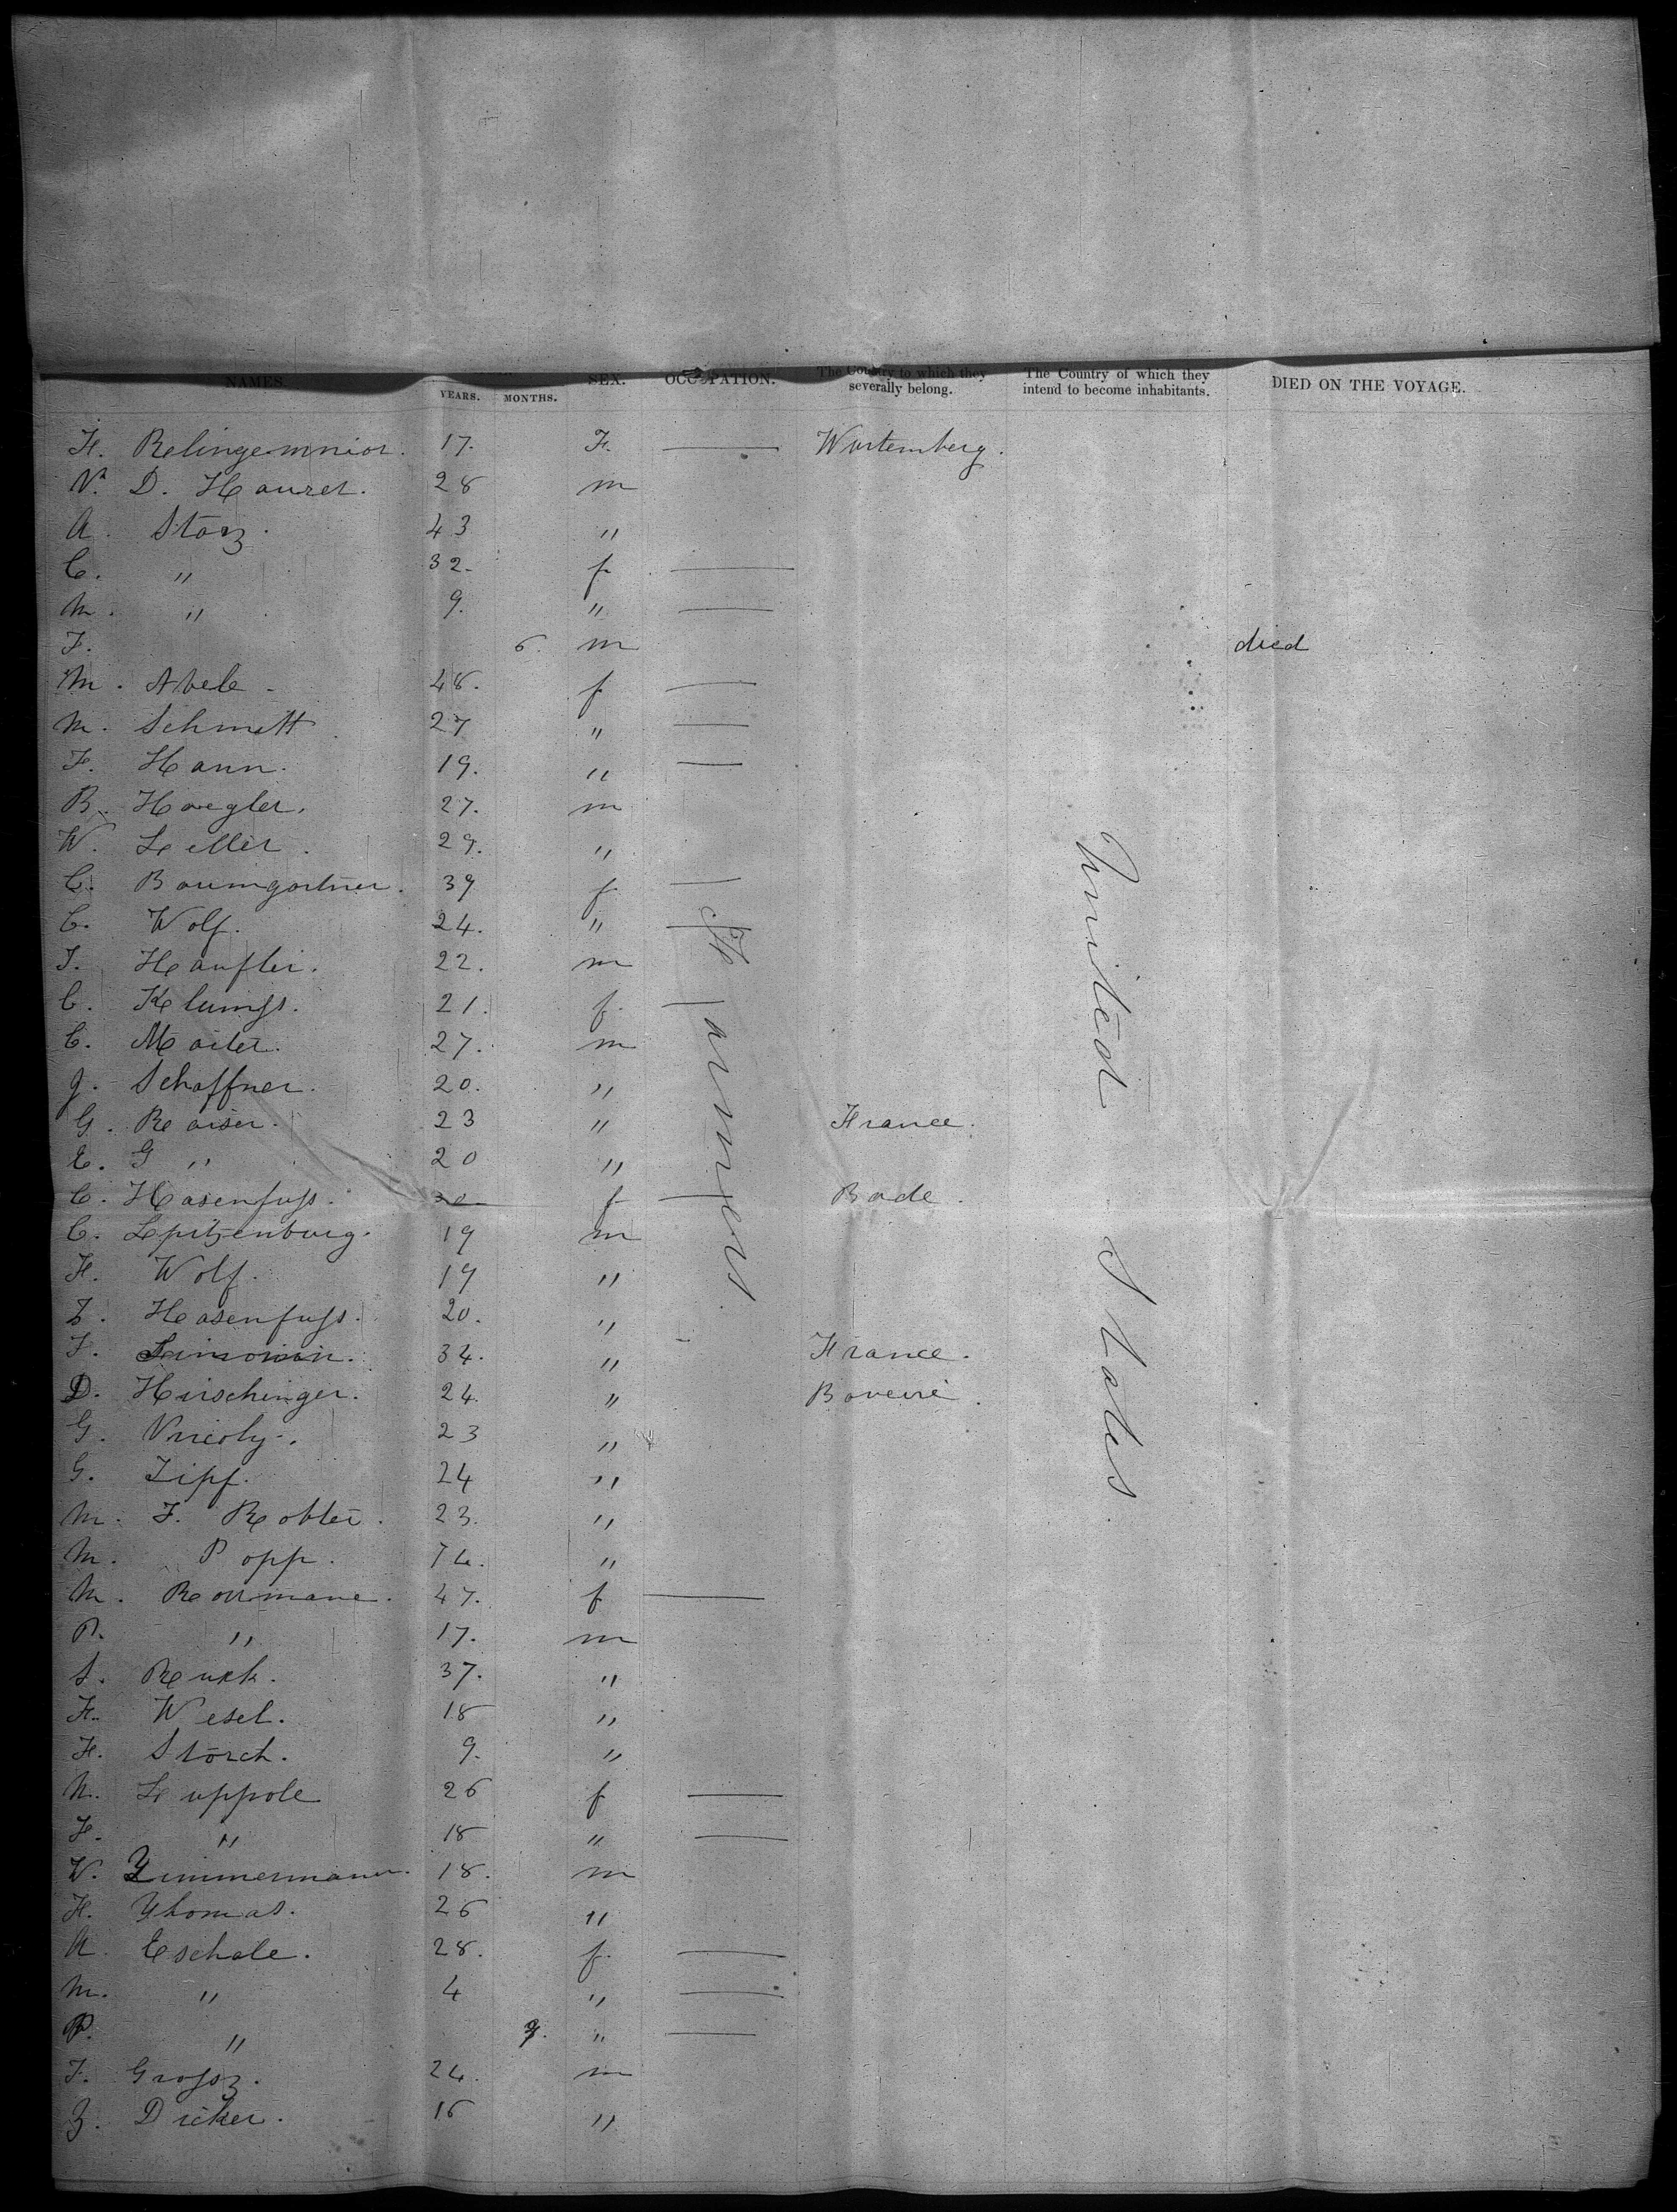 NAMES. YEARS. MONTHS. SEX. OCCUPATION. The Country to which they severally belong. The Country of which they intend to become inhabitants. DIED ON THE VOYAGE.
H. 17. F. — Wurtemberg.
V. D. Hauret. 28 m
A. Storz. 43 "
C. " 32. f —
M. " 9. " —
F. 6. m died
M. Abele 48. f —
M. Schmitt 27 " —
F. Hann. 19. " —
B. Haegler. 27. m
W. 29. "
C. Baumgartner. 39 f —
C. Wolf. 24. " —
J. Haufler. 22. m
C. 21. f. —
C. Maier. 27. m
J. Schaffner. 20. "
G. Raiser. 23 " France.
E. G " 20 "
C. Hasenfuss. 30 f — Bade.
C. Spitzenburg. 19 m
H. Wolf. 19 "
Z. Hasenfuss. 20. "
F. Simonin. 34. " France.
D. Hirschinger. 24. "
G. 23 "
G. Zipf. 24 "
M. F. 23. "
M. Popp. 74. "
M. 47. f —
P. " 17. m
S. Ruck. 37. "
F. Wesel. 18 "
F. Storch. 9. "
M. Luppole 26 f —
F. " 18 " —
W. Zimmermann. 18. m
H. Thomas. 26 "
A. Eschale. 28. f. —
M. " 4 " —
P. " " —
F. 24. m
Z. Dicker. 16 "
Farmers
United States.